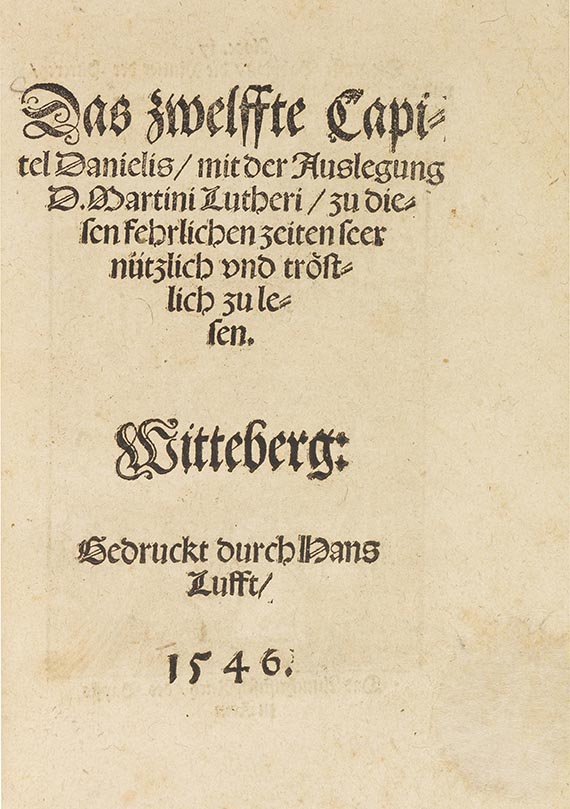 Das zwelffte Capi⸗
tel Danielis / mit der Auslegung
D. Martini Lutheri / zu die⸗
sen fehrlichen zeiten seer
nützlich vnd tröst⸗
lich zu le⸗
sen.
Witteberg:
Gedruckt durch Hans
Lufft /
1546.